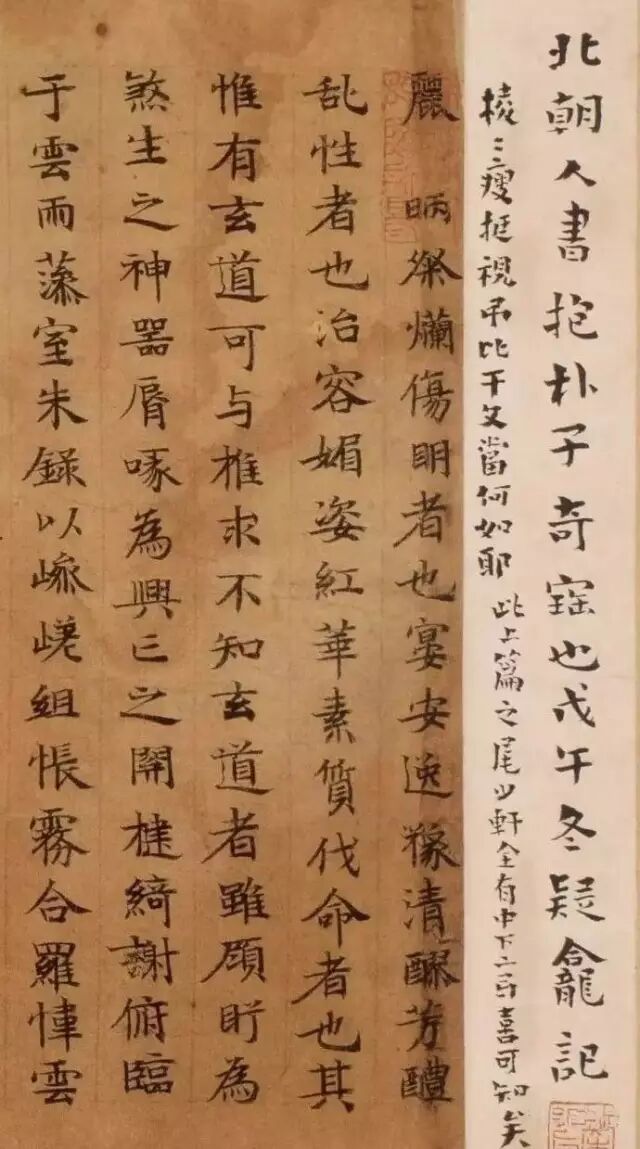 北朝人書抱朴子奇寚也戊午冬疑龕記
棱〻瘦挺視弔比干文當何如耶 此上篇之尾少軒全有中下二喜可知矣
麗 昞粲爛傷明者也宴安逸豫清醪芳醴
乱性者也冶容媚姿紅華素質伐命者也其
惟有玄道可与推求不知玄道者雖顧眄為
煞生之神器脣啄為興亡之開楗綺謝俯臨
于雲雨藻室朱錄以嵾嵯組帳霧合羅幬雲